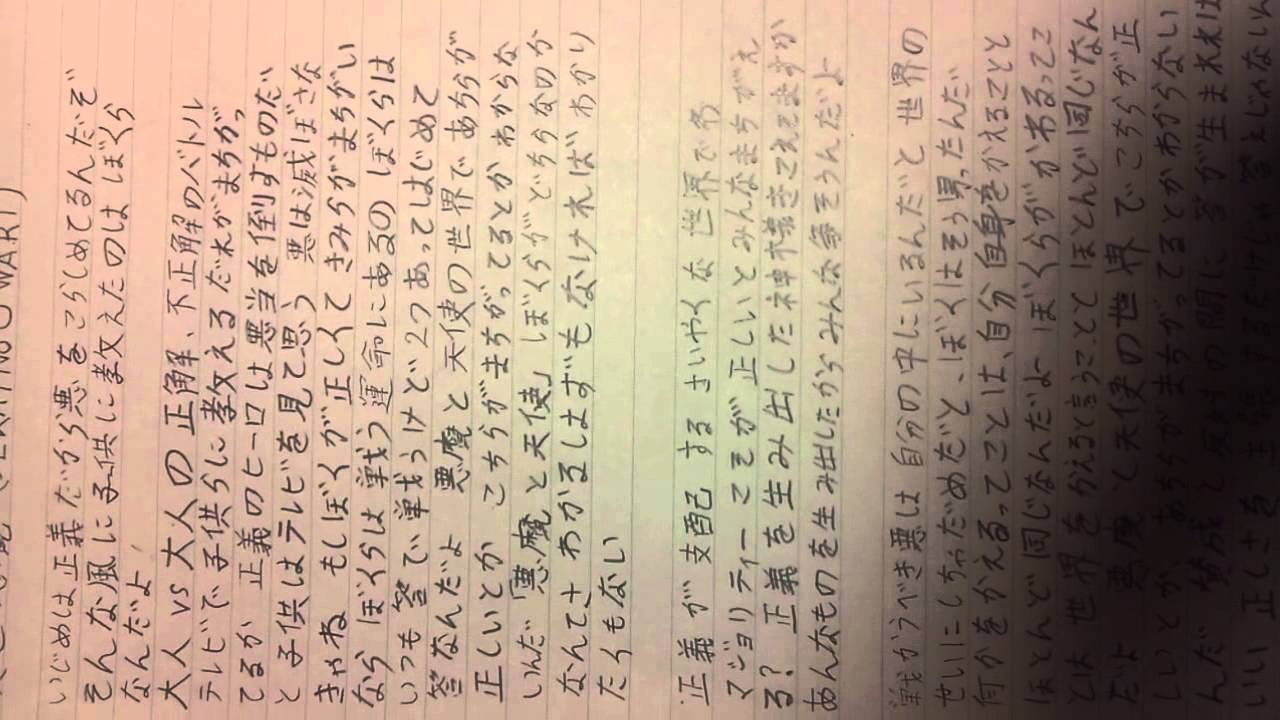 いじめは正義だから悪をこらしめてるんだぞ
そんな風に子供に教えたのは ぼくら
なんだよ
大人 vs 大人の正解、不正解のバトル
テレビで子供らに教える だれがまちがっ
てるか 正義のヒーローは悪当を倒すものだ
と 子供はテレビを見て思う 悪は滅ぼさな
きゃね もしぼくが正しくて きみらがまちがい
なら ぼくらは戦う 運命にあるの ぼくらは
いつも答で戦うけど2つあってはじめて
答なんだよ 悪魔と天使の世界で あちらが
正しいとか こちらがまちがってるとかわからな
いんだ「悪魔と天使」ぼくらがどちらなのか
なんてさ わかるしはずもなければ わかり
たくもない
正義が 支配 する さいやくな 世界でね
マジョリティーこそが 正しいとみんなまちがえ
る? 正義を生み出した神様さえもますか
あんなものを生み出したからみんな争そうんだよ
戦かうべき悪は 自分の中にいるんだと 世界の
せいにしちゃだめだと、ぼくはそう思ったんだ
何かをかえるってことは、自分自身をかえることと
ほとんど同じなんだよ ぼくらがかわるってこ
とは 世界をかえると言うことと ほとんど同じなん
だよ 悪魔と天使の世界で こちらが正
しいとか あちらがまちがってるとかわからない
んだ 賛成と反対の間に 答が生まれれば
いい 正しさを